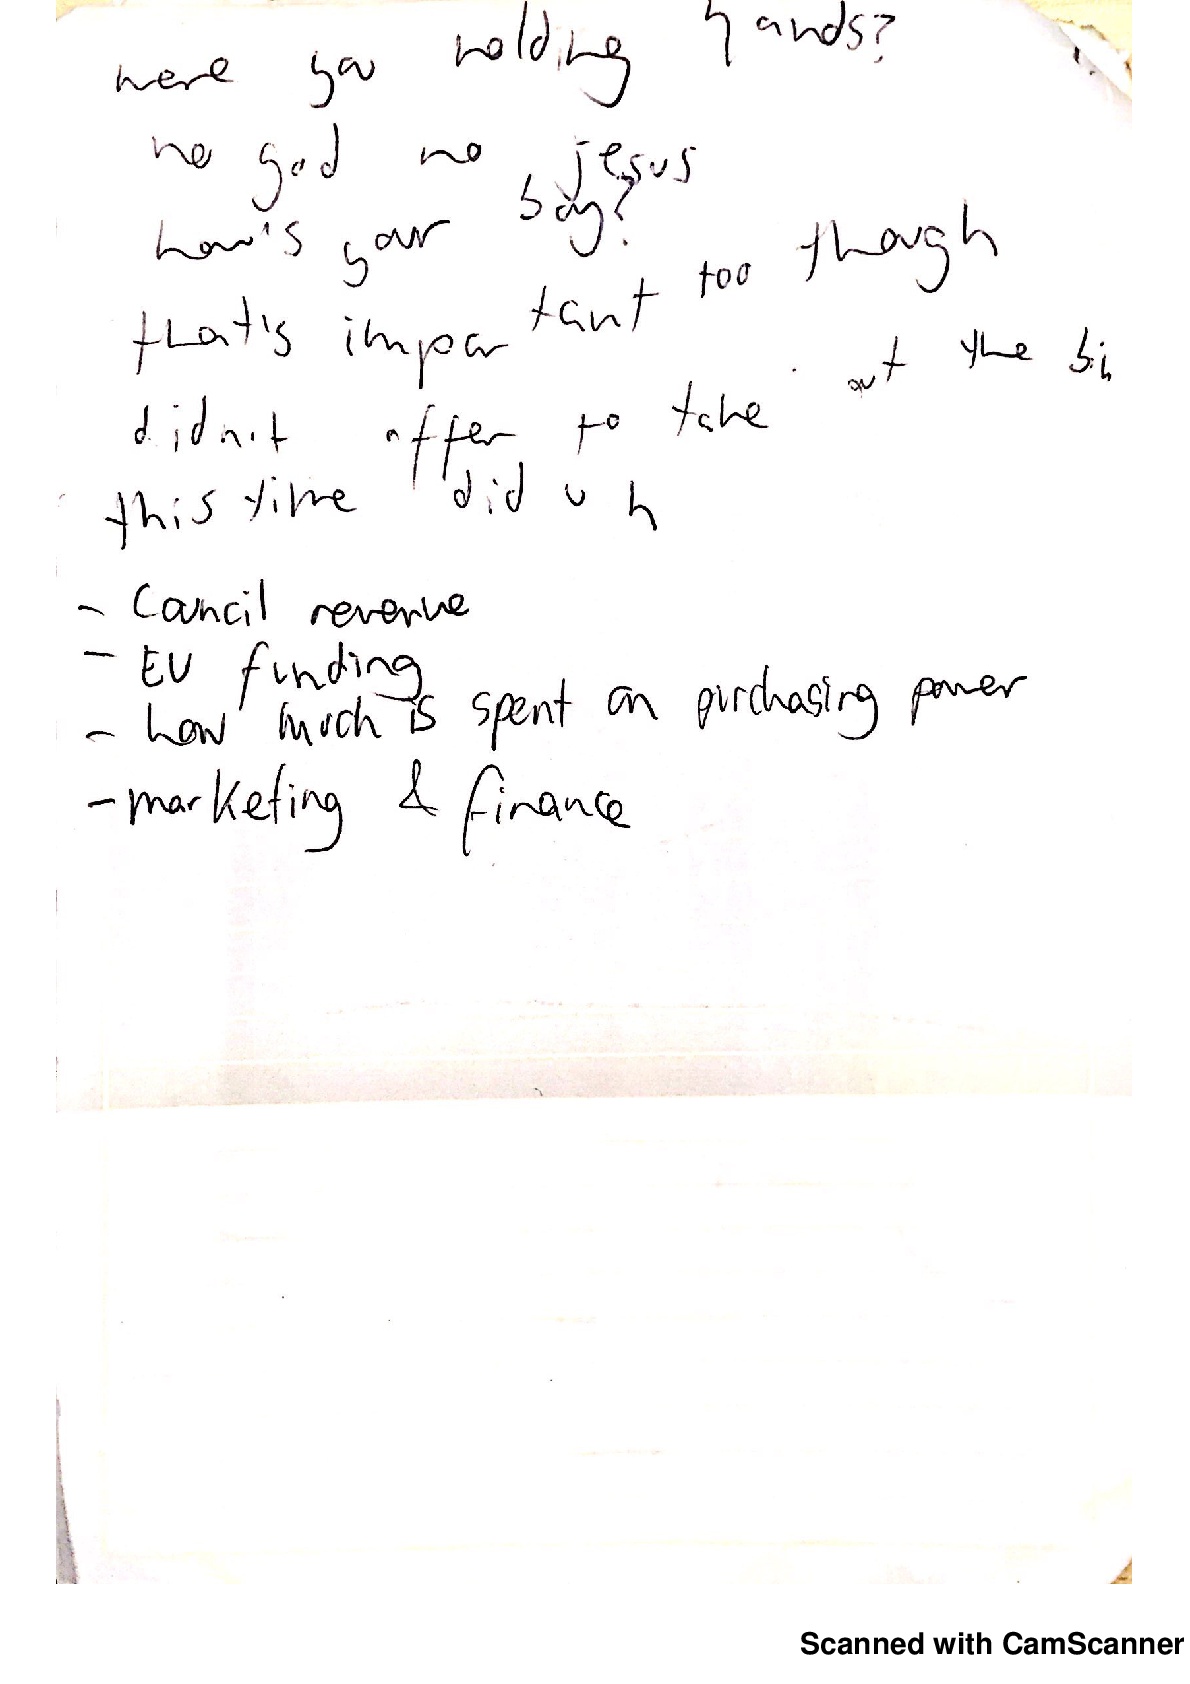 were you holding hands?
no god no jesus
how's your boy?
that's important too though
didn't offer to take out the bin
this time did u h
- Council revenue
- EU funding
- how much is spent on purchasing power
- marketing & finance
Scanned with CamScanner